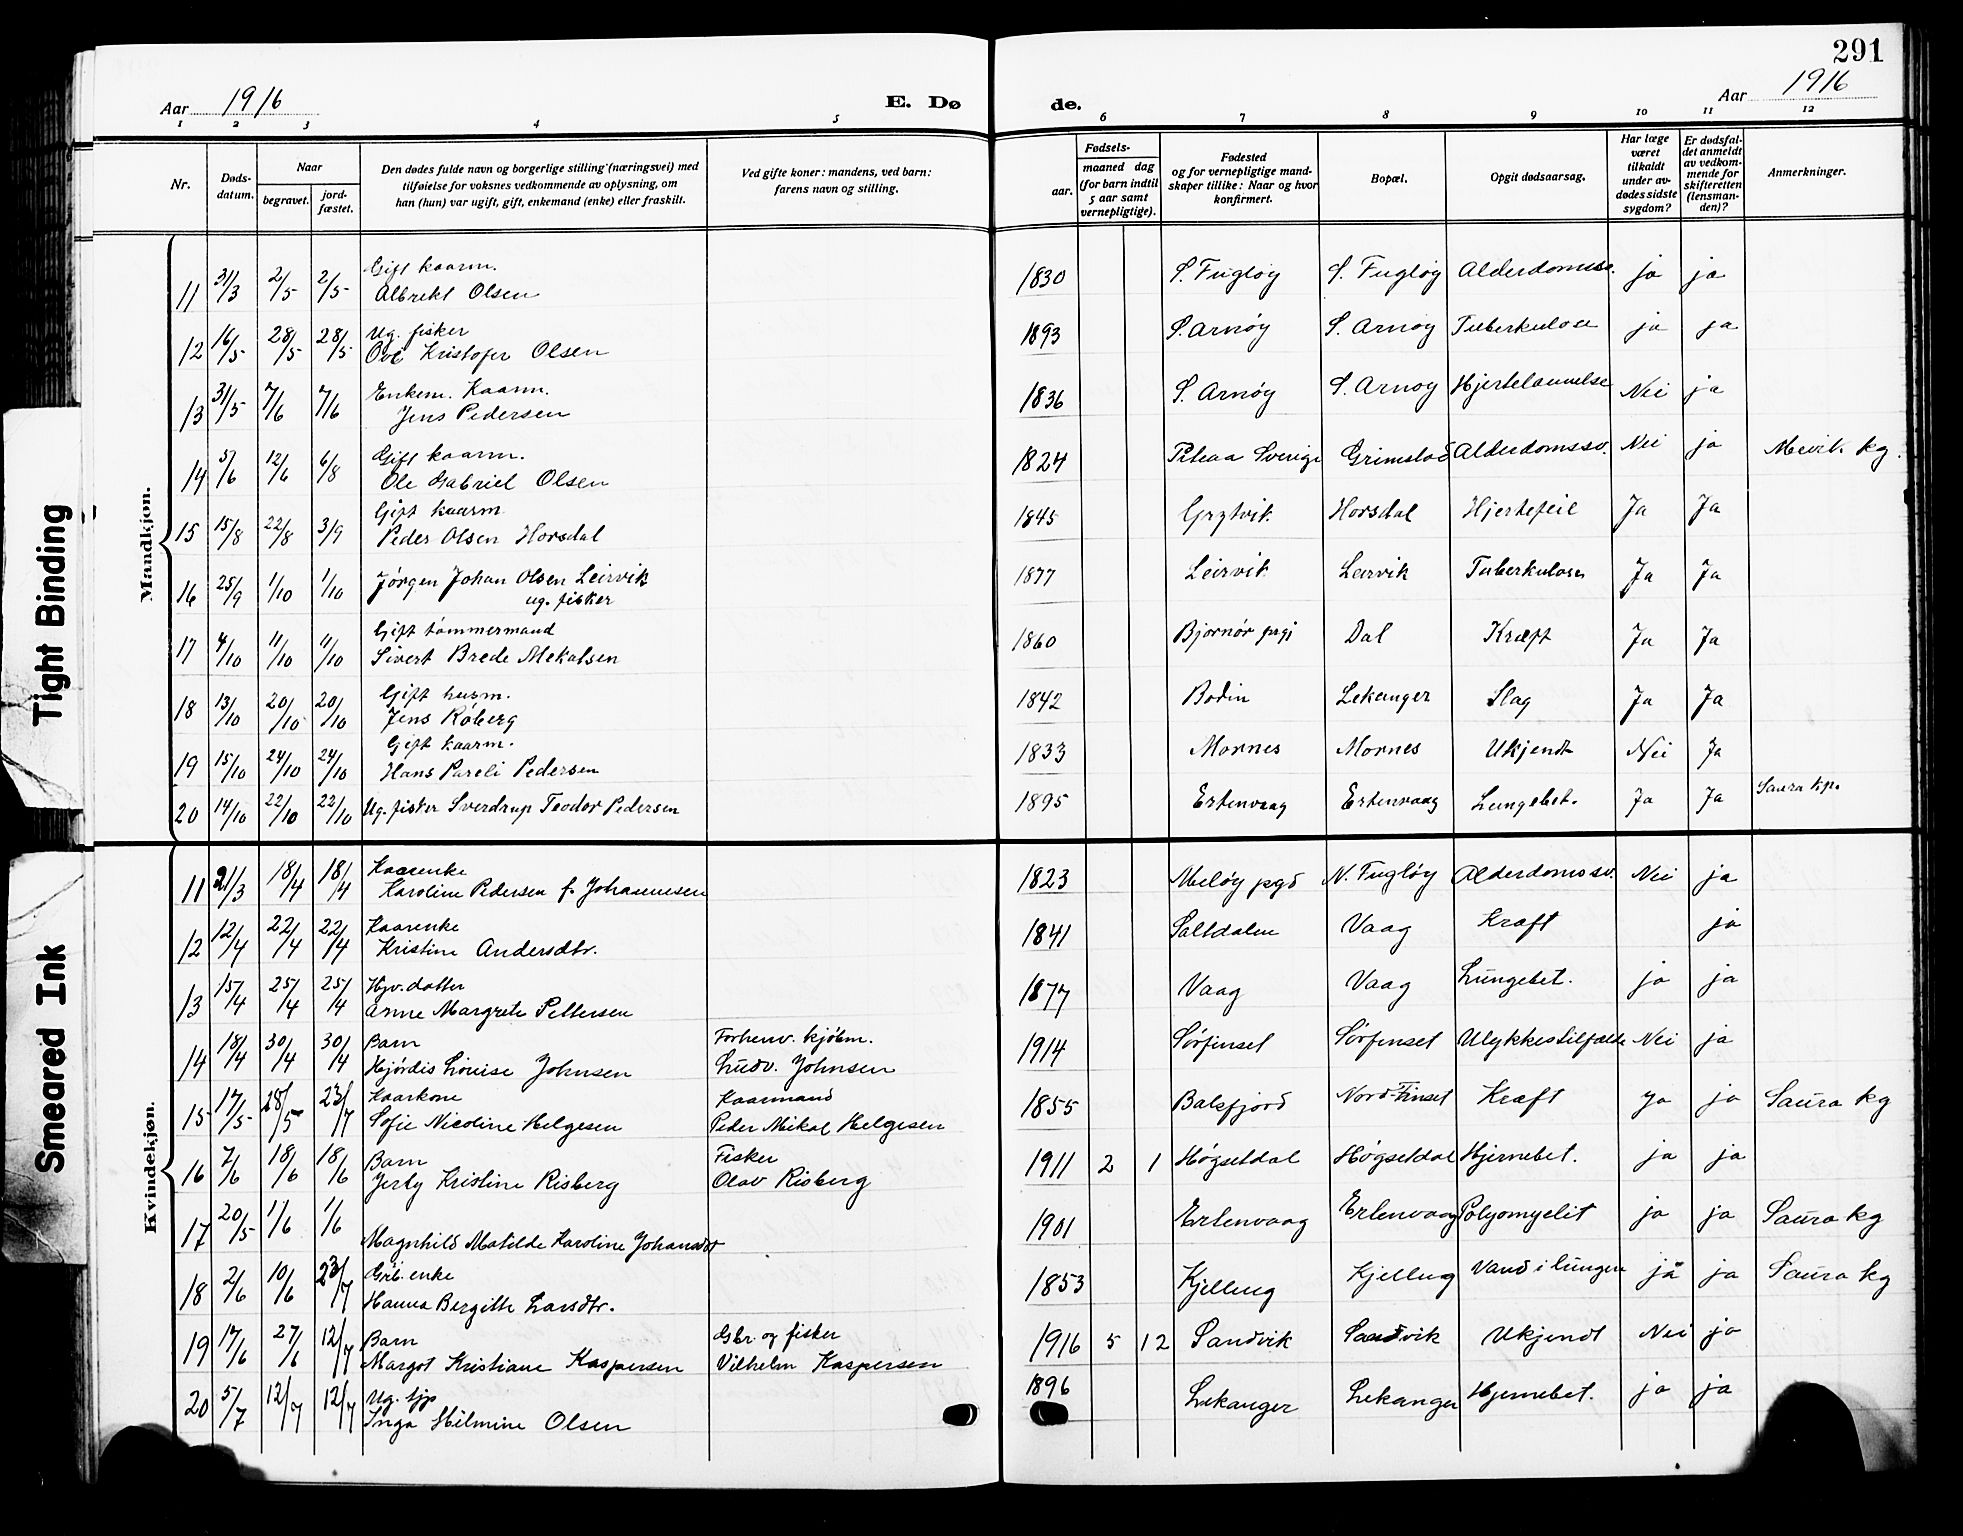 291
Aar 1916 E. Dø de. Aar 1916
1 2 3 4 5 6 7 8 9 10 11 12
Nr.
Døds-
datum.
Naar
begravet.
jord-
fæstet.
Den dødes fulde navn og borgerlige stilling (næringsvei) med
tilføielse for voksnes vedkommende av oplysning, om
han (hun) var ugift, gift, enkemand (enke) eller fraskilt.
Ved gifte koner: mandens, ved barn:
farens navn og stilling.
Fødsels-
aar.
maaned dag
(for barn indtil
5 aar samt
vernepligtige).
Fødested
og for vernepligtige mand-
skaper tillike: Naar og hvor
konfirmert.
Bopæl.
Opgit dødsaarsag.
Har læge
været
tilkaldt
under av-
dødes sidste
sygdom?
Er dødsfal-
det anmeldt
av vedkom-
mende for
skifteretten
(lensman-
den)?
Anmerkninger.
Mandkjøn.
Gift kaarm.
11 31/3 2/5 2/5 Albrekt Olsen 1830 S. Fugløy S. Fugløy Alderdomssv. ja ja
Ug. fisker
12 16/5 28/5 28/5 Ove Kristofer Olsen 1893 S. Arnøy S. Arnøy Tuberkulose ja ja
Enkem. Kaarm.
13 31/5 7/6 7/6 Jens Pedersen 1836 S. Arnøy S. Arnoy Hjertelammelse Nei ja
Gift kaarm.
14 5/6 12/6 6/8 Ole Gabriel Olsen 1824 Piteaa Sverige Grimstad Alderdomssv. Nei ja Mevik kg.
Gift kaarm
15 15/8 22/8 3/9 Peder Olsen Horsdal 1845 Grytvik Horsdal Hjertefeil Ja Ja
16 25/9 1/10 1/10 Jørgen Johan Olsen Leirvik 1877 Leirvik Leirvik Tuberkulose Ja Ja
ug. fisker
Gift tømmermand
17 4/10 11/10 11/10 Sivert Brede Mekalsen 1860 Bjørnør prgj Dal Kræft Ja Ja
Gift husm.
18 13/10 20/10 20/10 Jens Røberg 1842 Bodin Lekanger Slag Ja Ja
Gift kaarm.
19 15/10 24/10 24/10 Hans Pareli Pedersen 1833 Mornes Mornes Ukjendt Nei Ja
20 14/10 22/10 22/10 Ug. fisker Sverdrup Teodor Pedersen 1895 Estenvaag Estenvaag Lungebet. Ja Ja Saura kp.
Kvindekjøn.
Kaarenke
11 21/3 18/4 18/4 Karoline Pedersen f. Johannesen 1823 Meløy pgd N. Fugløy Alderdomssv. Nei ja
Kaarenke
12 12/4 22/4 22/4 Kristine Andersdtr. 1841 Saltdalen Vaag Kræft ja
Hjv. datter
13 15/4 25/4 25/4 Anne Margrete Pettersen 1877 Vaag Vaag Lungebet. ja ja
Barn Forhenv. kjøbm.
14 18/4 30/4 30/4 Hjørdis Louise Johnsen Ludv. Johnsen 1914 Sørfinset Sørfinset Ulykkestilfælde Nei ja
Kaarkone Kaarmand
15 17/5 28/5 23/7 Sofie Nicoline Helgesen Peder Mikal Helgesen 1855 Balsfjord Nord-Finset Kræft ja ja Saura kg
Barn Fisker
16 7/6 18/6 18/6 Jerty Kristine Risberg Olav Risberg 1911 2 1 Høgsetdal Høgsetdal Hjernebet. ja ja
17 20/5 1/6 1/6 Magnhild Matilde Karoline Johansdt 1901 Ertenvaag Ertenvaag Polyomyelit ja ja Saura kg
Grb. enke
18 2/6 10/6 23/7 Hanna Bergitte Larsdtr. 1853 Kjelling Kjelling Vand i lungen ja ja Saura kg
Barn Gbr. og fisker
19 17/6 27/6 12/7 Margot Kristiane Kaspersen Vilhelm Kaspersen 1916 5 12 Sandvik Sandvik Ukjendt Nei ja
Ug. tjp
20 5/7 12/7 12/7 Inga Hilmine Olsen 1896 Lekanger Lekanger Hjernebet. ja ja
Tight Binding
Smeared Ink